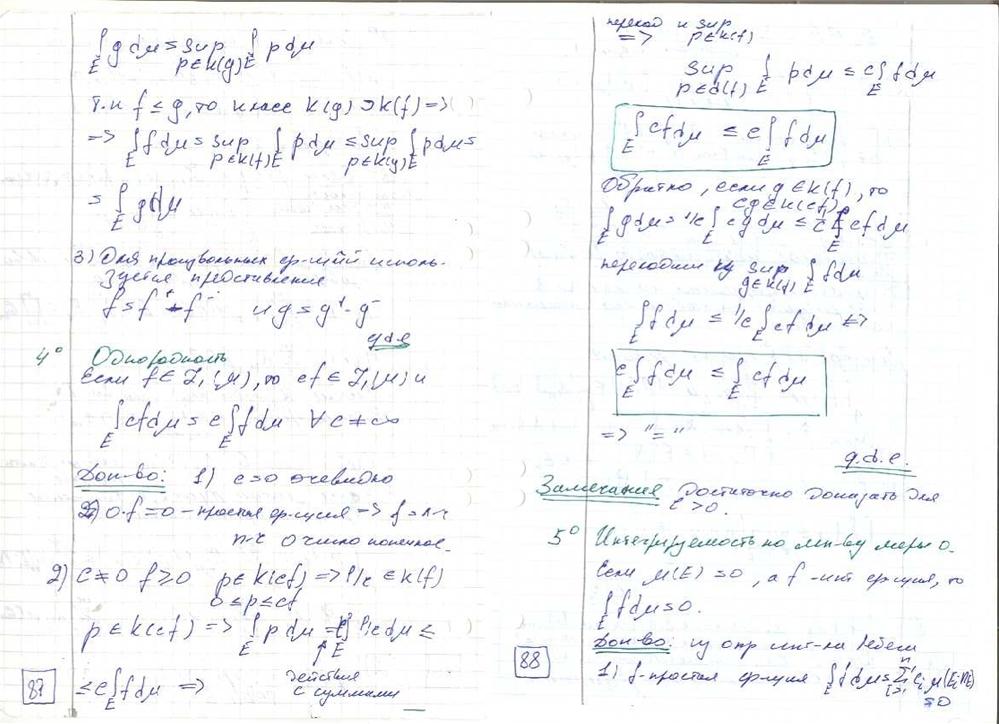 ∫_E g dμ = sup_{p∈K(g)} ∫_E p dμ
Т.к f ≤ g, то класс K(g) ⊃ K(f) =>
=> ∫_E f dμ = sup_{p∈K(f)} ∫_E p dμ ≤ sup_{p∈K(g)} ∫_E p dμ =
= ∫_E g dμ
3) Для произвольных ф-ций исполь-
зуется представление
f = f⁺ - f⁻ и g = g⁺ - g⁻
q.d.e
4° Однородность
Если f ∈ L₁(μ), то cf ∈ L₁(μ) и
∫_E cf dμ = c ∫_E f dμ ∀ c ≠ ∞
Док-во: 1) c=0 очевидно
0·f = 0 - простая ф-ция =>
0 число
2) c ≠ 0 f ≥ 0 p ∈ K(cf) => p/c ∈ K(f)
0 ≤ p ≤ cf
p ∈ K(cf) => ∫_E p dμ = c∫_E p/c dμ ≤
действия
с суммами
≤ c ∫_E f dμ =>
87
переход к sup_{p∈K(f)}
=>
sup_{p∈K(f)} ∫_E p dμ ≤ c ∫_E f dμ
∫_E cf dμ ≤ c ∫_E f dμ
Обратно, если g ∈ K(f), то
cg ∈ K(cf)
∫_E g dμ = 1/c ∫_E cg dμ ≤ 1/c ∫_E cf dμ
переходим к sup_{g∈K(f)} ∫_E f dμ
∫_E f dμ ≤ 1/c ∫_E cf dμ <=>
c ∫_E f dμ ≤ ∫_E cf dμ
=> "="
q.d.e.
Замечание Достаточно доказать для
c > 0.
5° Интегрируемость по мн-ву меры 0.
Если μ(E) = 0, а f - инт ф-ция, то
∫_E f dμ = 0.
Док-во: из опр инт-ла Лебега
1) f-простая ф-ция ∫_E f dμ = Σ_{i=1}^n c_i μ(E_i∩E)
= 0
88